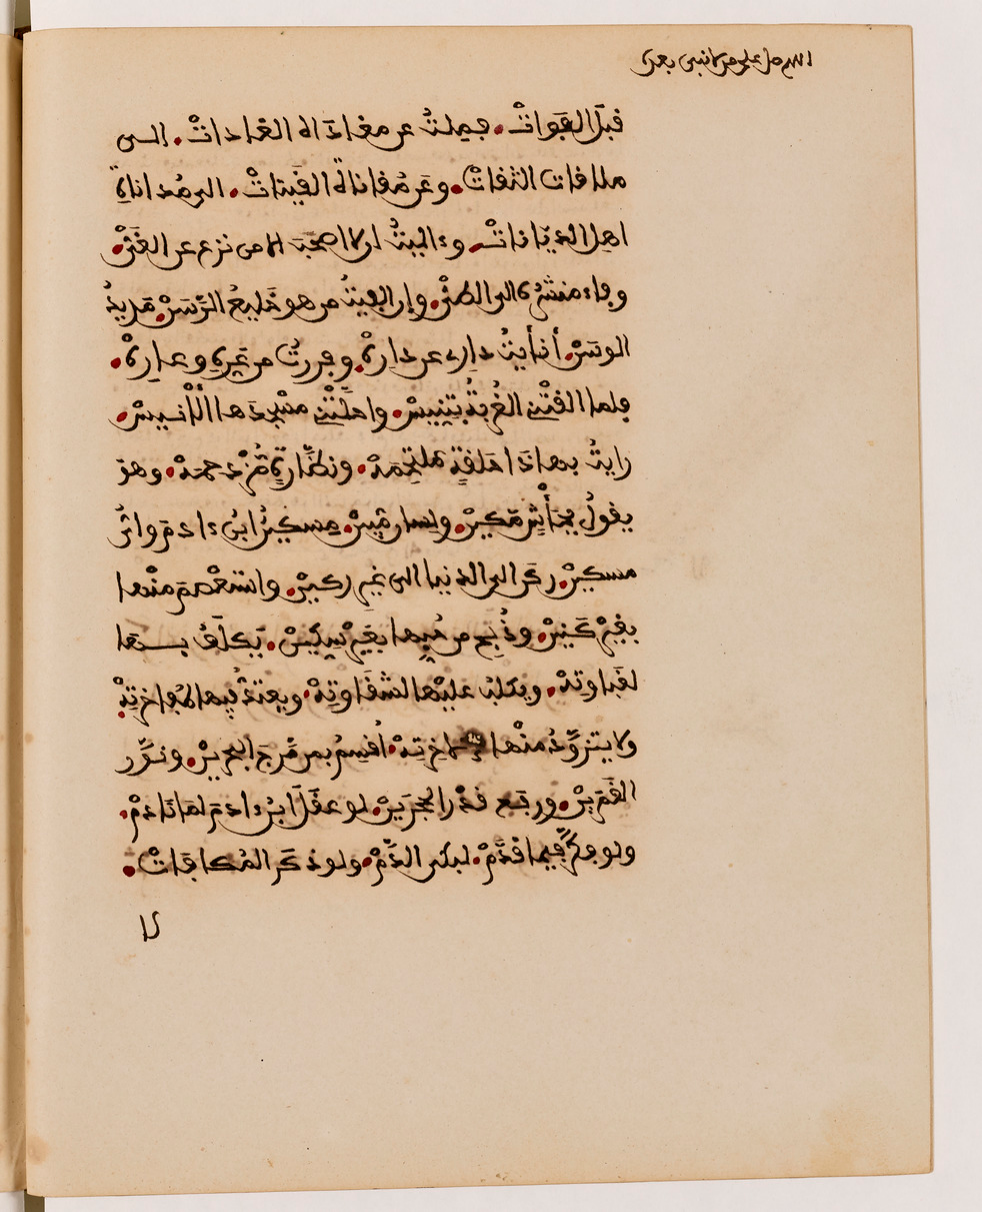 اللهم صل على من لا نبي بعده
قبل الفوات. فملت عن مغاداة الغادات. الى
ملاقات الثقات. وعن مقاناة القينات. الى مداناة
اهل الديانات. وءاليت ان لا اصحب الا من نزع عن الغي.
وفاء منشره الى الطي. وان الفيت من هو خليع الرسن. مديد
الوسن. أنأيت داري عن داره. وفررت من عره وعاره.
فلما القتني الغربة بتنيس. واحلتني مسجدها الأنيس.
رايت بها ذا حلقة ملتحمة. ونظارة مزدحمة. وهو
يقول بجأش مكين. ولسان مبين. مسكين ابن ءادم واي
مسكين. ركن الى الدنيا الى غير ركين. واستعصم منها
بغير مكين. وذبح من حبها بغير سكين. يكلف بها
لغباوته. ويكلب عليها لشقاوته. ويعتد فيها لمفاخرته.
ولا يتزود منها لاخرته. اقسم بمن مرج البحرين. ونور
القمرين. ورفع قدر الحجرين. لو عقل ابن ءادم لما نادم.
ولو فكر فيما قدم. لبكى الدم. ولو ذكر المكافات.
لا